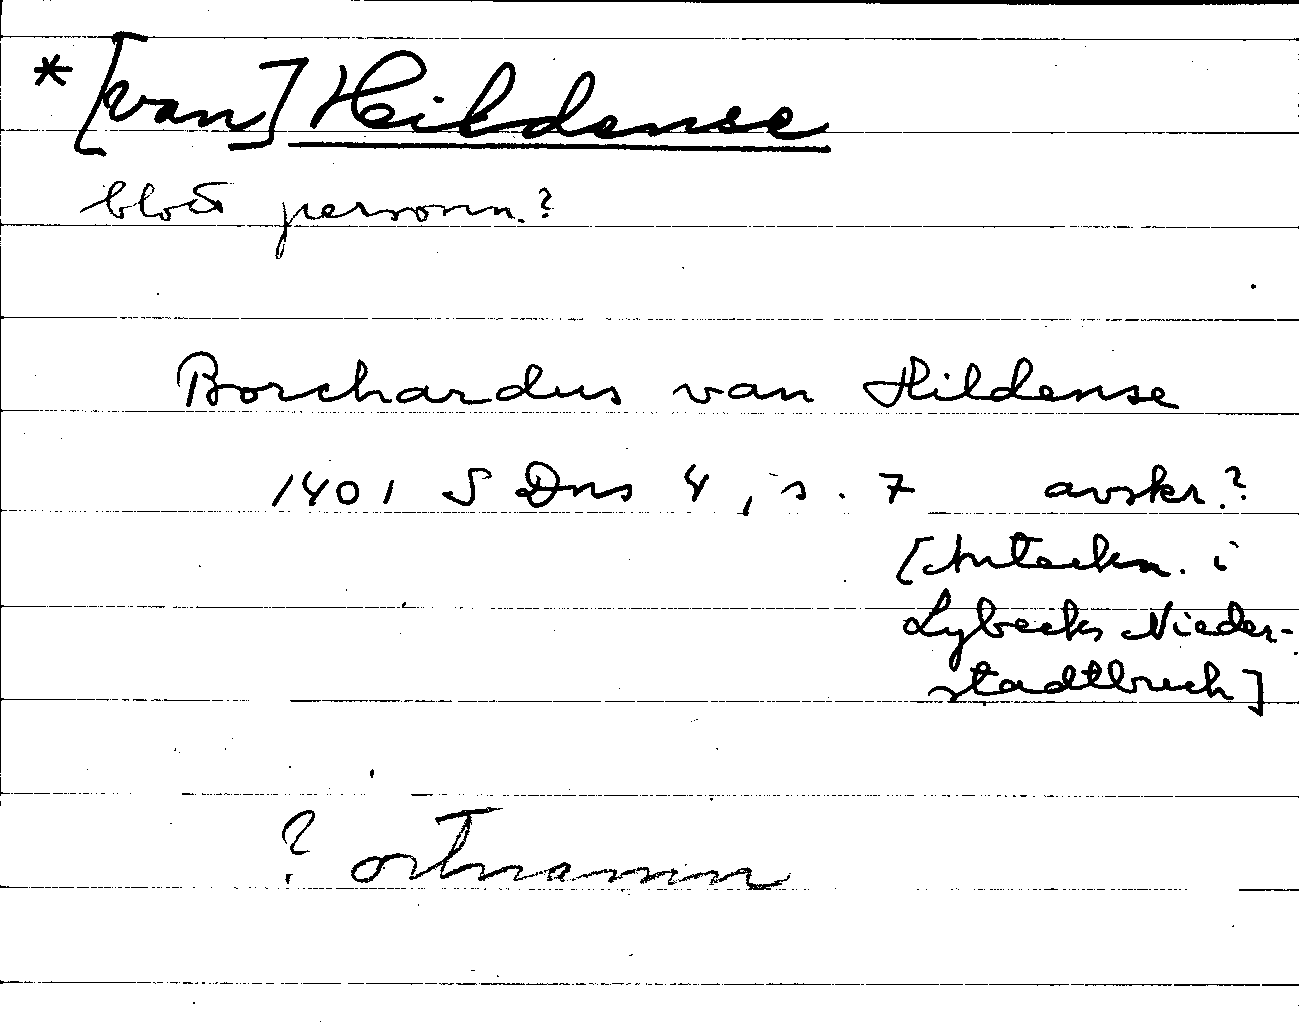 *[van] Hildense
blott personn.?
Borchardus van Hildense
1401 S Dns 4, s. 7 avskr.?
[Anteckn. i
Lybecks Nieder-
stadtbuch]
? ortnamn